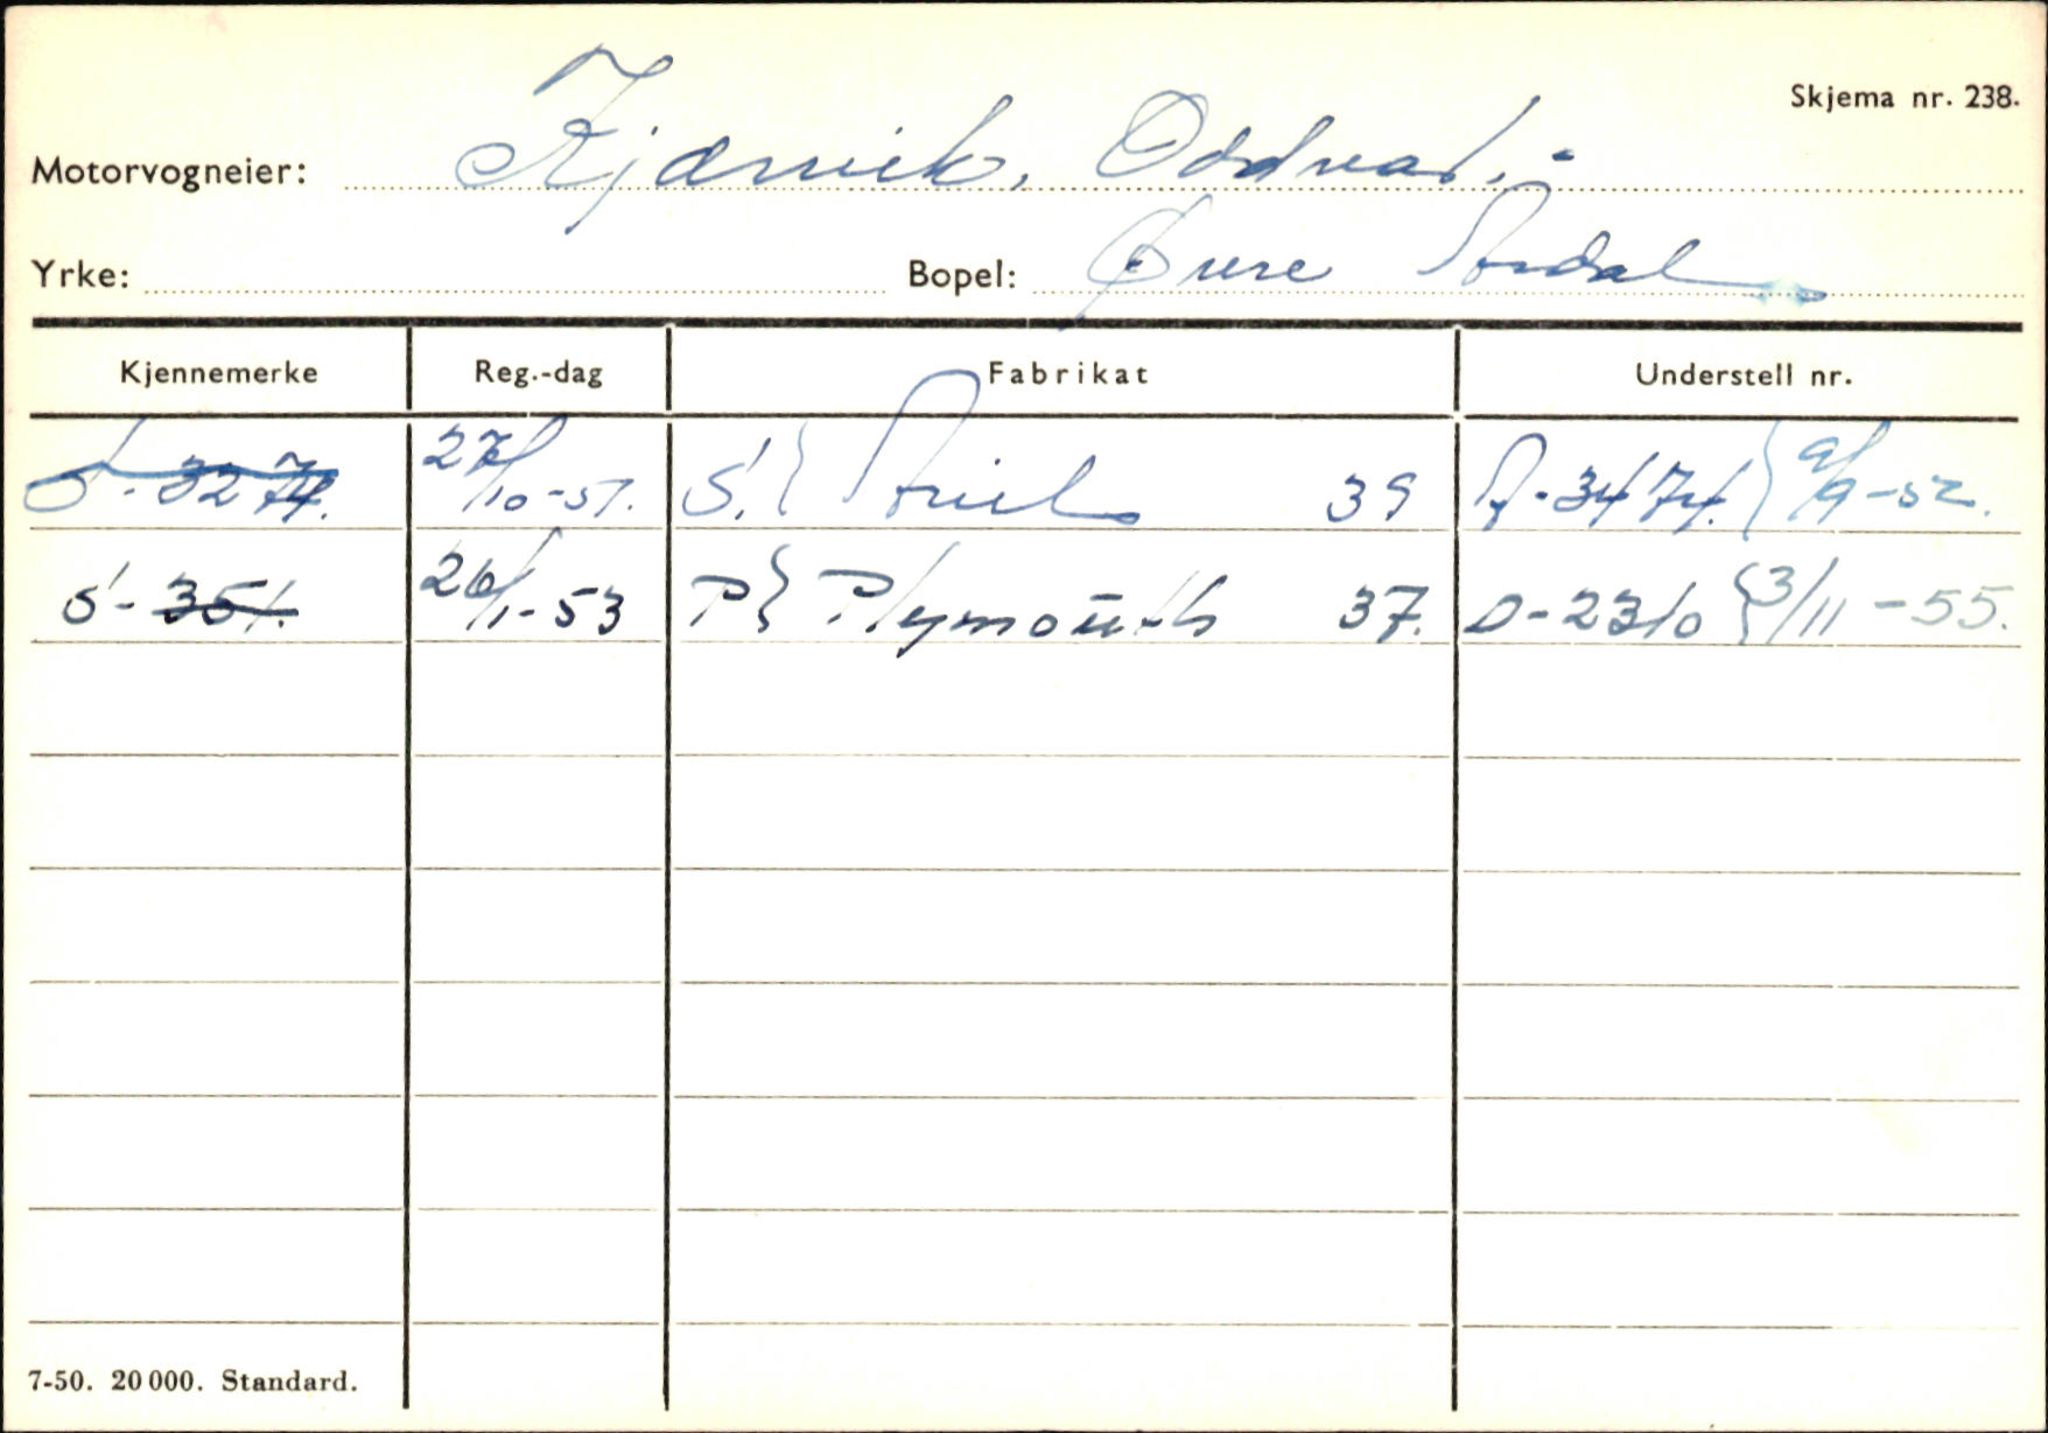 Skjema nr. 238.
Motorvogneier: Kjærvik, Oddvar.-
Yrke: Bopel: Øvre Årdal
Kjennemerke Reg.-dag Fabrikat Understell nr.
S-3274. 27/10-51. S.} Ariel 39 A-3474.} 9/9-52.
S-351. 26/1-53 P} Plymouth 37. D-2310 } 3/11-55.
7-50. 20 000. Standard.